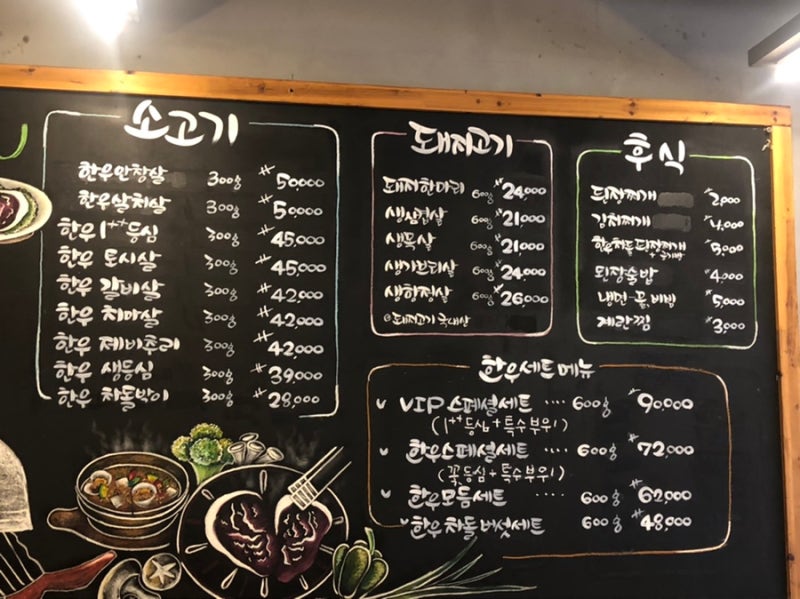 소고기
한우안창살 300g ₩50000
한우살치살 300g ₩50000
한우1++등심 300g ₩45,000
한우 토시살 300g ₩45,000
한우 갈비살 300g ₩42000
한우 치마살 300g ₩42000
한우 제비추리 300g ₩42000
한우 생등심 300g ₩39,000
한우 차돌박이 300g ₩28,000
돼지고기
돼지한마리 600g ₩24,000
생삼겹살 600g ₩21,000
생목살 600g ₩21,000
생가브리살 600g ₩24,000
생항정살 600g ₩26,000
@돼지고기 국내산
후식
된장찌개 ₩2,000
김치찌개 ₩4,000
한우차돌된장찌개+공기밥
된장술밥 ₩4,000
냉면-물,비빔 ₩5,000
계란찜 ₩3,000
한우세트메뉴
VIP 스페셜세트 .... 600g ₩90,000
(1++등심+특수부위)
한우스페셜세트 600g ₩72,000
(꽃등심+특수부위)
한우모듬세트 .... 600g ₩62,000
한우차돌버섯세트 600g ₩48,000